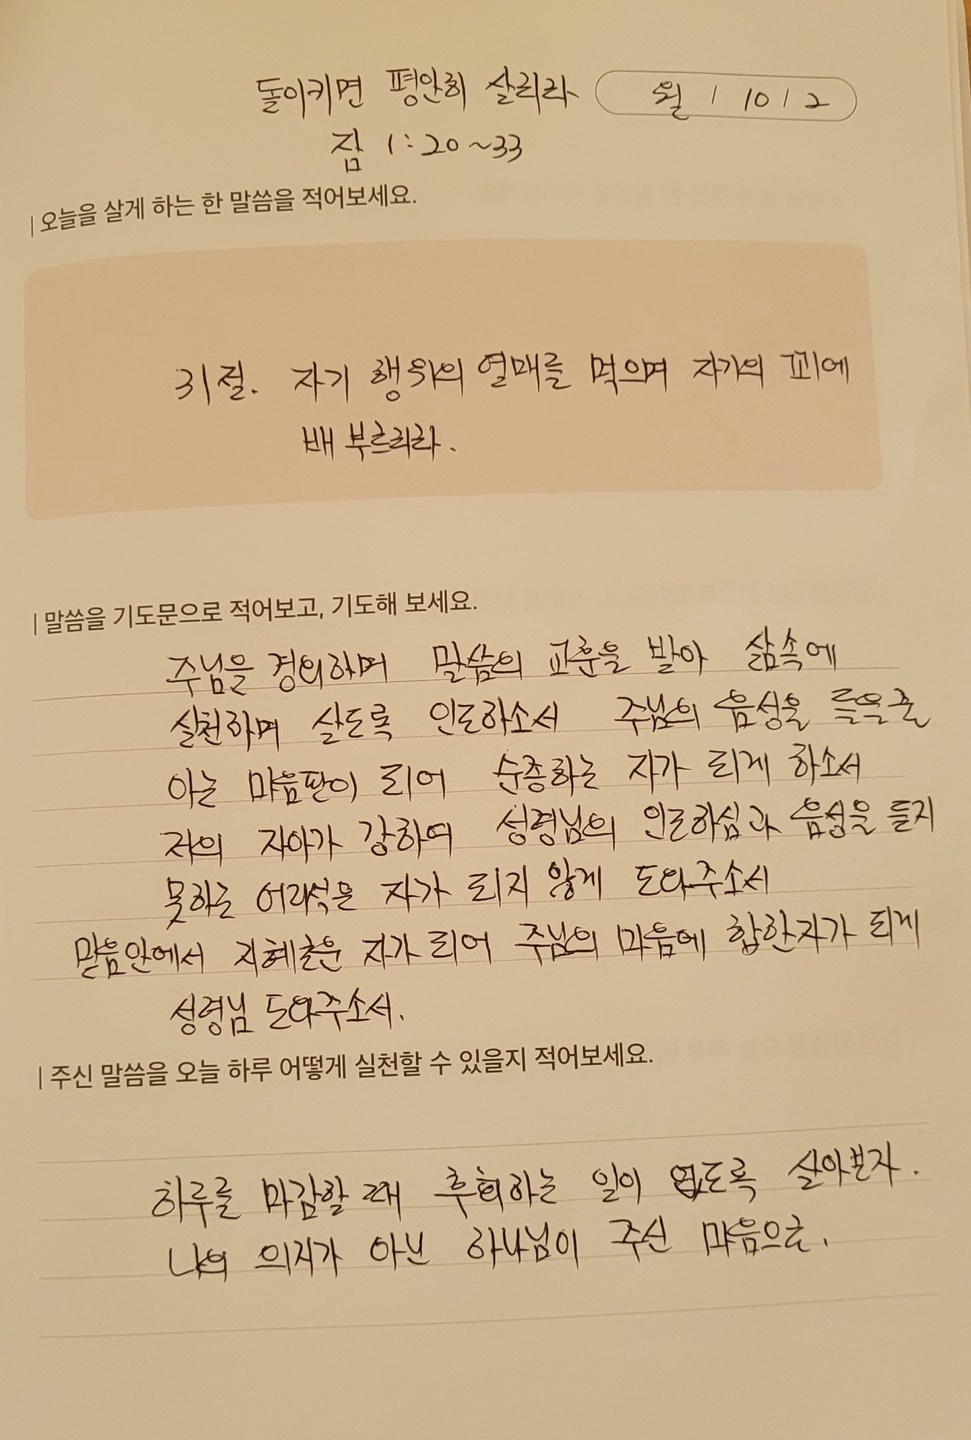 돌이키면 평안히 살리라 월 / 10 / 2
잠 1:20~33
| 오늘을 살게 하는 한 말씀을 적어보세요.
31절. 자기 행위의 열매를 먹으며 자기의 꾀에
배 부르리라.
| 말씀을 기도문으로 적어보고, 기도해 보세요.
주님을 경외하며 말씀의 교훈을 받아 삶속에
실천하며 살도록 인도하소서 주님의 음성을 들을줄
아는 마음판이 되어 순종하는 자가 되게 하소서
저의 자아가 강하여 성령님의 인도하심과 음성을 듣지
못하는 어리석은 자가 되지 않게 도와주소서
말씀안에서 지혜로운 자가 되어 주님의 마음에 합한자가 되게
성령님 도와주소서.
| 주신 말씀을 오늘 하루 어떻게 실천할 수 있을지 적어보세요.
하루를 마감할 때 후회하는 일이 없도록 살아보자.
나의 의지가 아닌 하나님이 주신 마음으로.